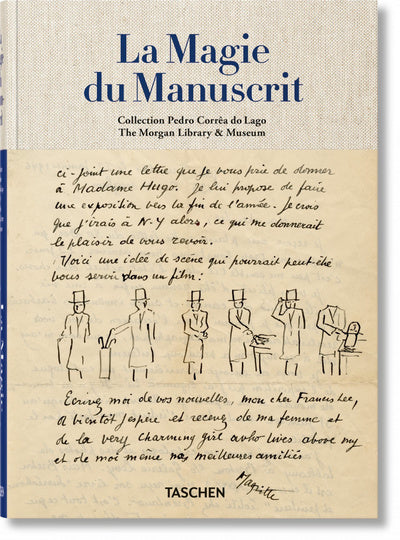 La Magie
du Manuscrit
Collection Pedro Corrêa do Lago
The Morgan Library & Museum
ci-joint une lettre que je vous prie de donner
à Madame Hugo. Je lui propose de faire
une exposition vers la fin de l'année. Je crois
que j'irais à N-Y alors, ce qui me donnerait
le plaisir de vous revoir.
Voici une idée de scène qui pourrait peut-être
vous servir dans un film:
Ecrivez moi de vos nouvelles, mon cher Francis Lee,
A bientôt j'espère et recevez de ma femme et
de la very charming girl who lives above my
et de moi même nos meilleures amitiés
Magritte
TASCHEN